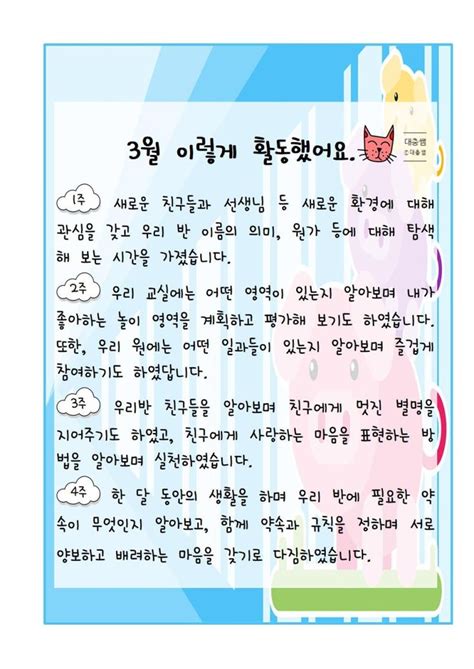 3월 이렇게 활동했어요.
대충쌤
1주 새로운 친구들과 선생님 등 새로운 환경에 대해
관심을 갖고 우리 반 이름의 의미, 원가 등에 대해 탐색
해 보는 시간을 가졌습니다.
2주 우리 교실에는 어떤 영역이 있는지 알아보며 내가
좋아하는 놀이 영역을 계획하고 평가해 보기도 하였습니다.
또한, 우리 원에는 어떤 일과들이 있는지 알아보며 즐겁게
참여하기도 하였답니다.
3주 우리반 친구들을 알아보며 친구에게 멋진 별명을
지어주기도 하였고, 친구에게 사랑하는 마음을 표현하는 방
법을 알아보며 실천하였습니다.
4주 한 달 동안의 생활을 하며 우리 반에 필요한 약
속이 무엇인지 알아보고, 함께 약속과 규칙을 정하며 서로
양보하고 배려하는 마음을 갖기로 다짐하였습니다.